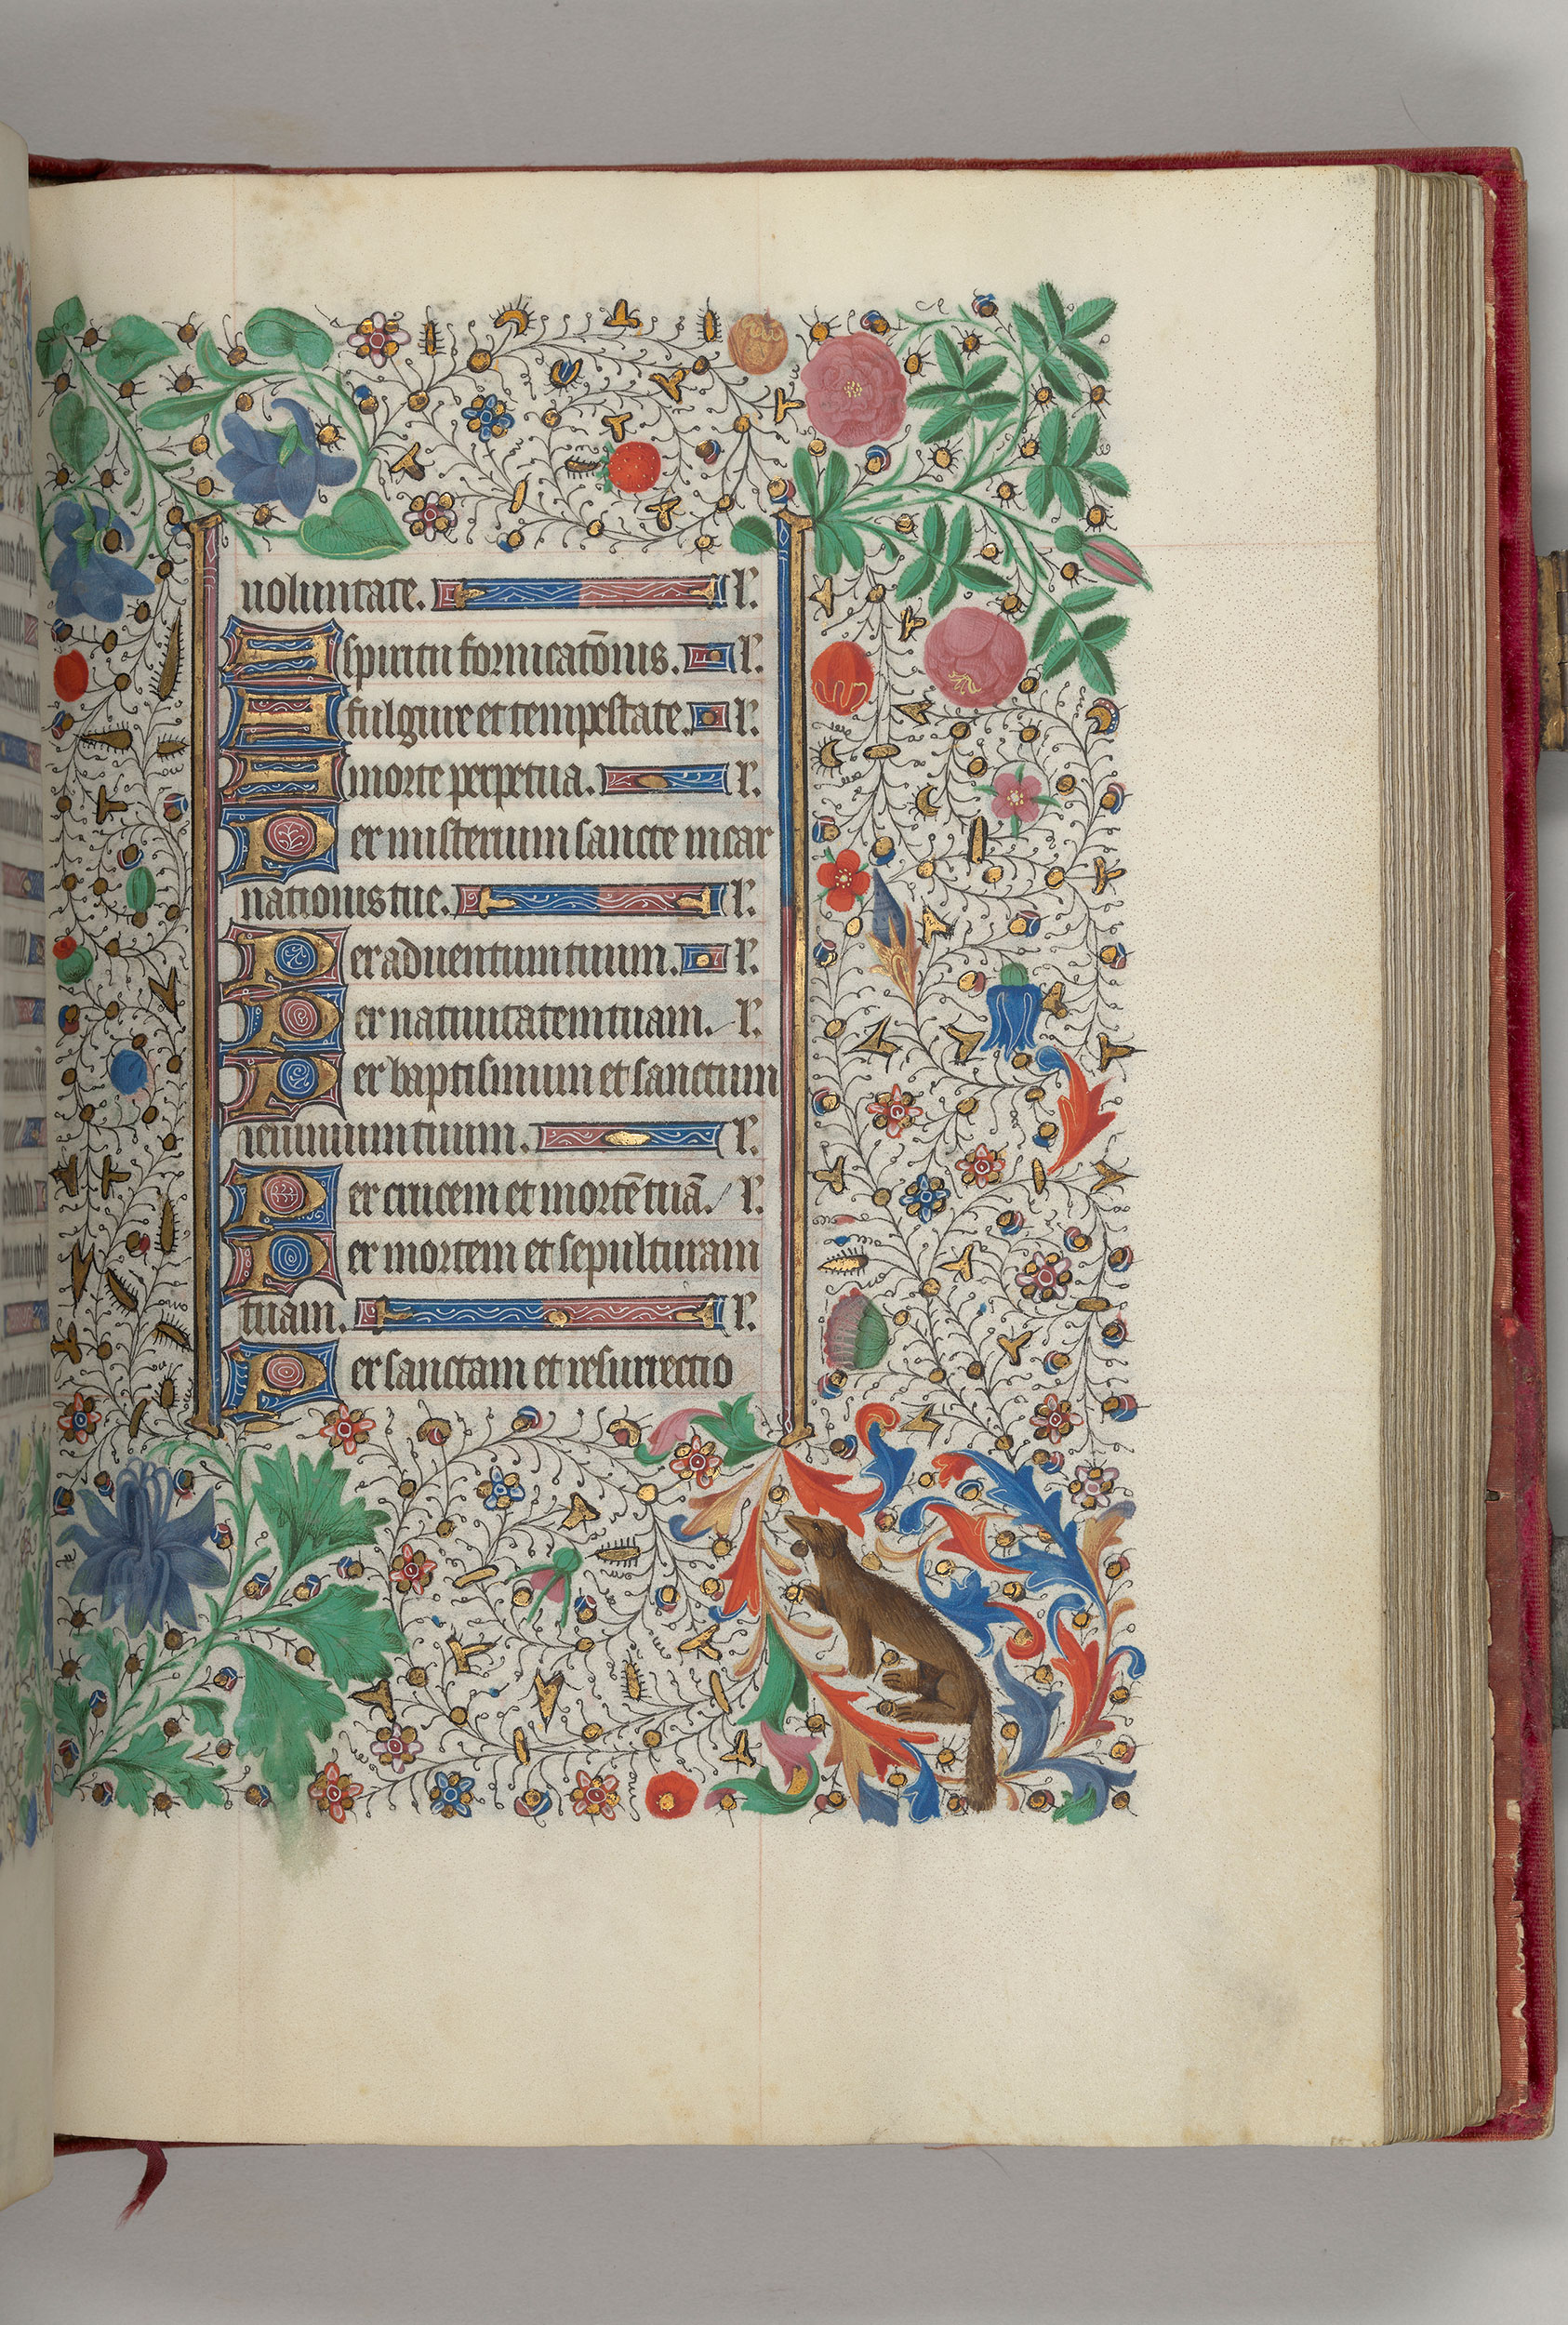 uoluntate. l'.
A spiritu fornicatōnis. l'.
A fulgure et tempestate. l'.
A morte perpetua. l'.
Per misterium sancte incar
nationis tue. l'.
Per aduentum tuum. l'.
Per natiuitatem tuam. l'.
Per baptismum et sanctum
ieiunium tuum. l'.
Per crucem et mortē tuā. l'.
Per mortem et sepulturam
tuam. l'.
Per sanctam et resurrectio